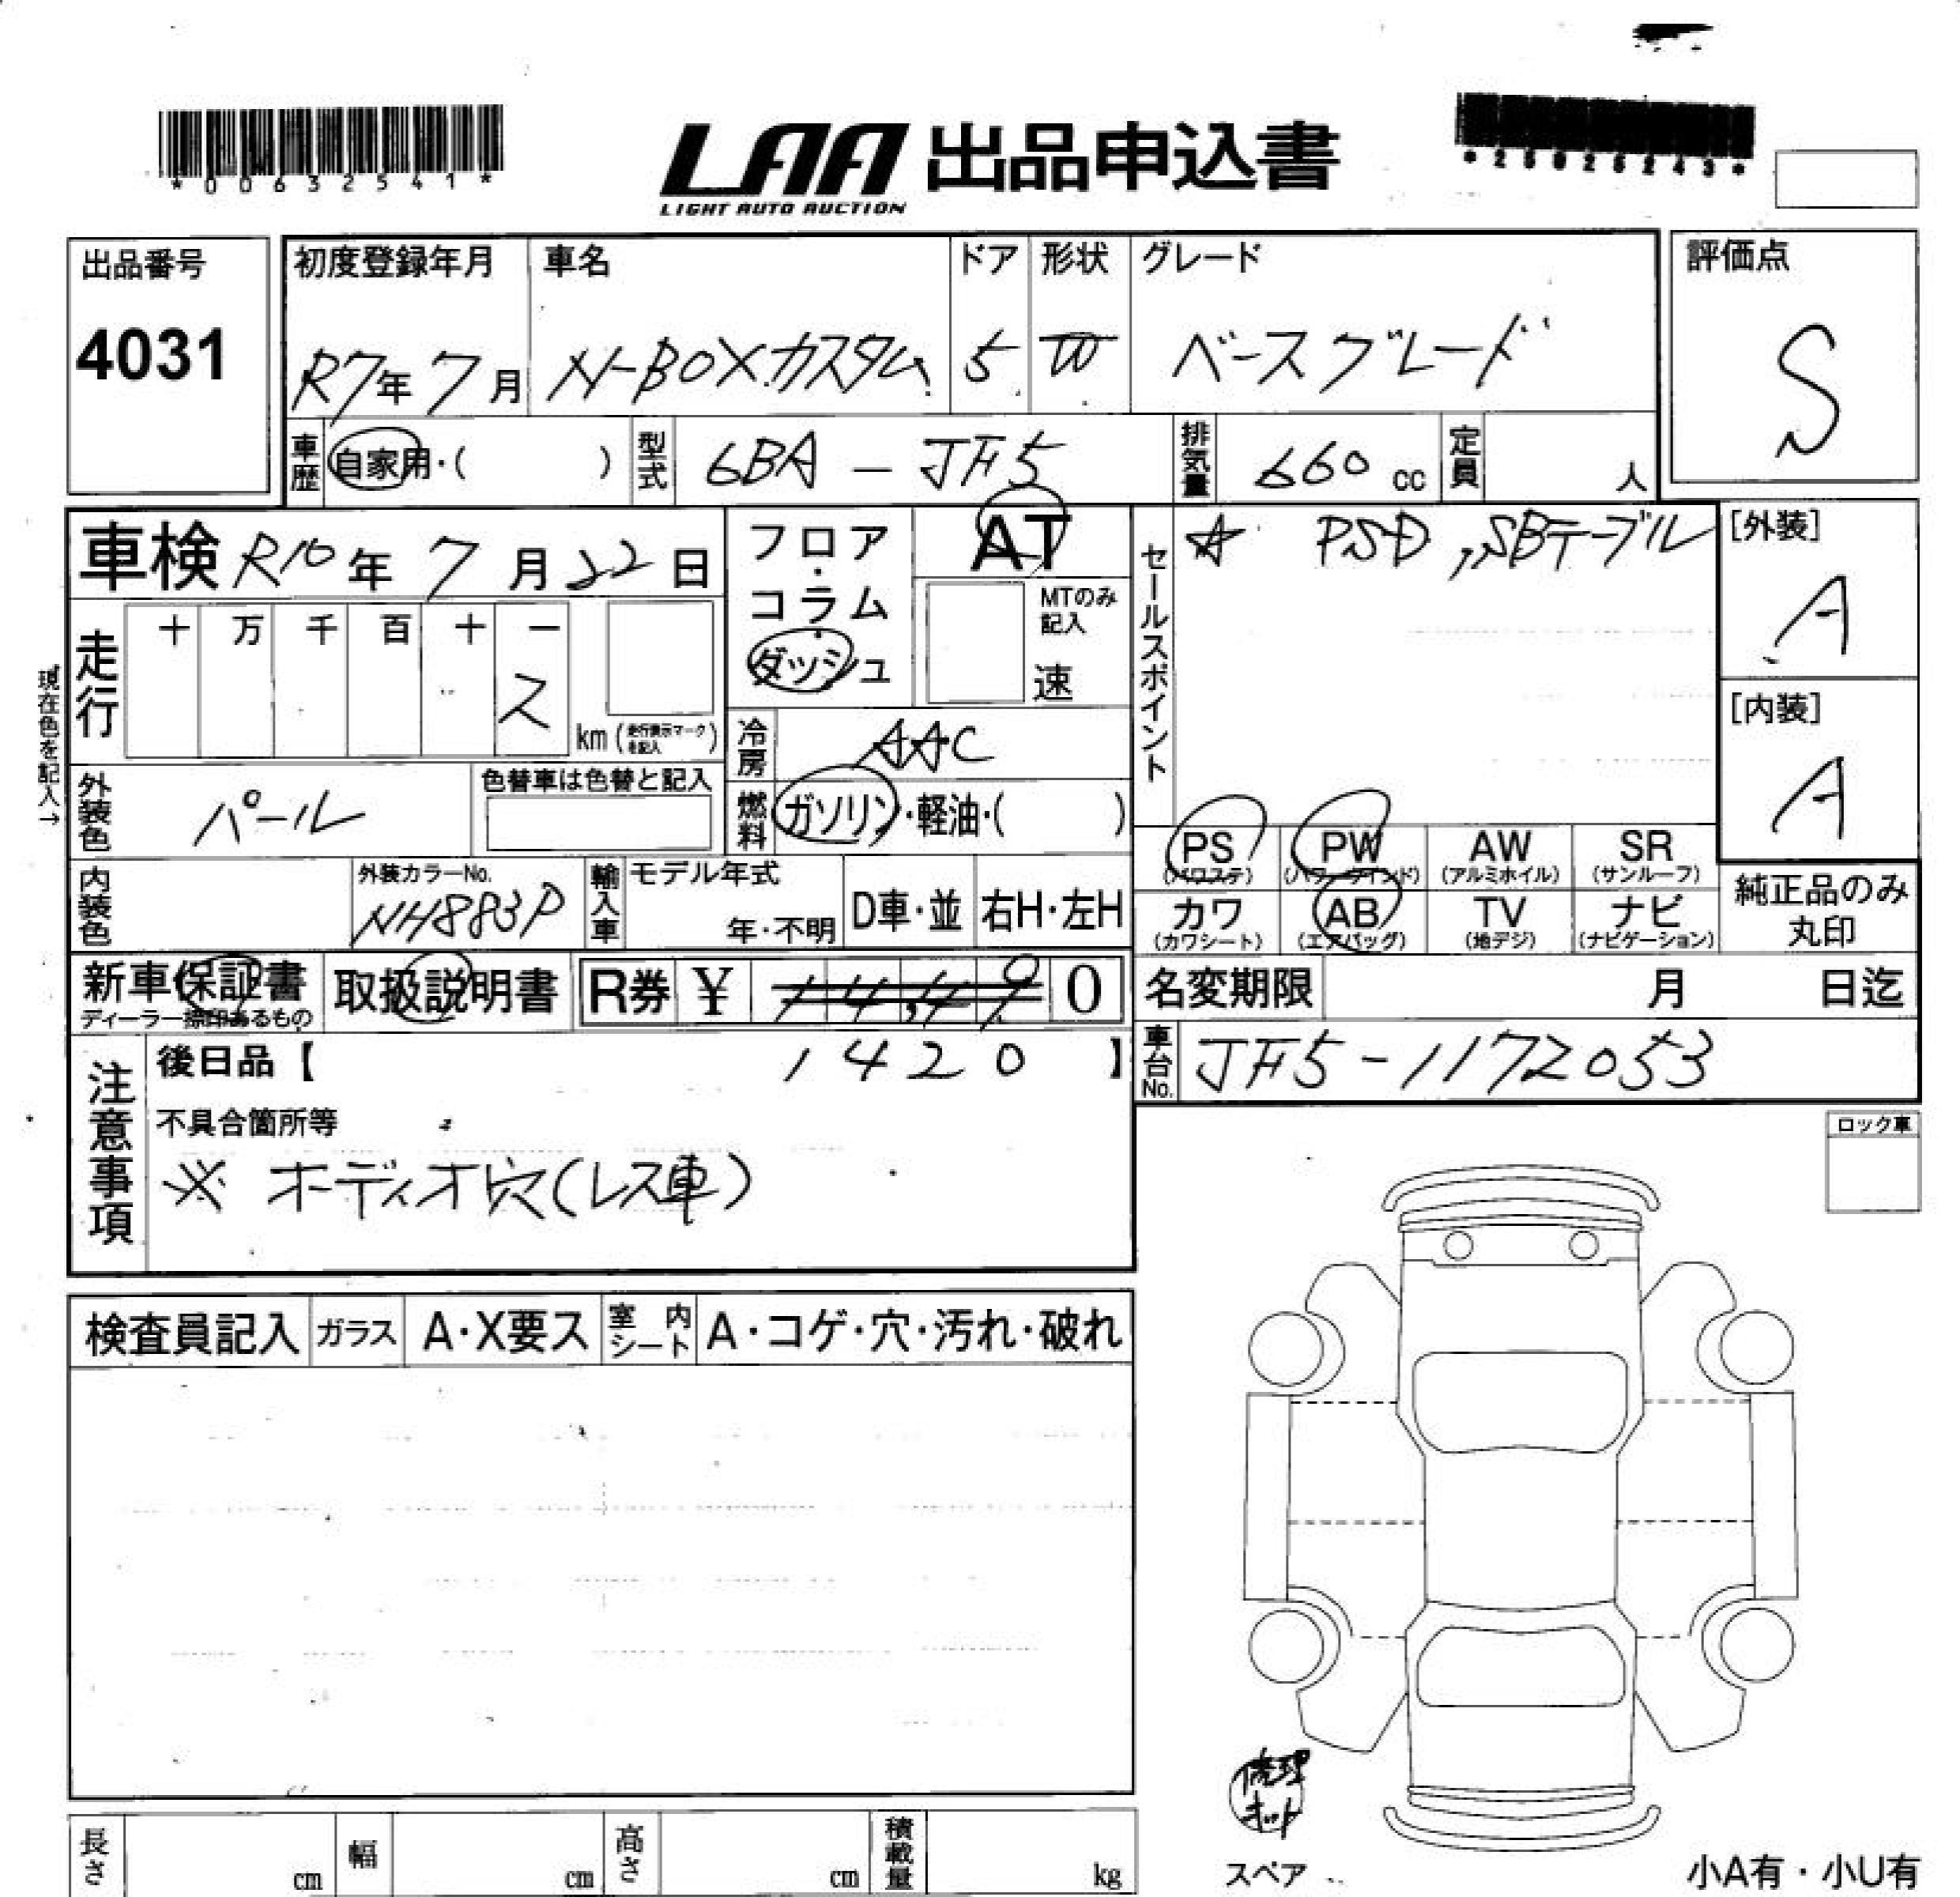 *00632541*
LAA 出品申込書
LIGHT AUTO AUCTION
*25026243*
出品番号
4031
初度登録年月
R7年 7月
車名
N-BOXカスタム
ドア
5
形状
W
グレード
ベースグレード
評価点
S
車歴
自家用・( )
型式
6BA - JF5
排気量
660 cc
定員
人
車検 R10年 7月 22日
フロア・コラム
ダッシュ
AT
MTのみ記入
速
セールスポイント
☆ PSD,SBテーブル
[外装]
A
[内装]
A
現在色を記入→
走行
十 万 千 百 十 一
ス
km(走行表示マークを記入)
冷房
AAC
外装色
パール
色替車は色替と記入
燃料
ガソリン・軽油・( )
PS (パワステ)
PW (パワーウインド)
AW (アルミホイル)
SR (サンルーフ)
カワ (カワシート)
AB (エアバッグ)
TV (地デジ)
ナビ (ナビゲーション)
純正品のみ丸印
内装色
外装カラーNo.
NH883P
輸入車
モデル年式
年・不明
D車・並
右H・左H
新車保証書
ディーラー捺印あるもの
取扱説明書
R券 ¥ 14,490
名変期限 月 日迄
注意事項
後日品【 1420 】
車台No.
JF5-1172053
不具合箇所等
※ オーディオ穴(レス車)
ロック車
検査員記入
ガラス
A・X要ス
室内シート
A・コゲ・穴・汚れ・破れ
修理キット
スペア
長さ cm
幅 cm
高さ cm
積載量 kg
小A有・小U有